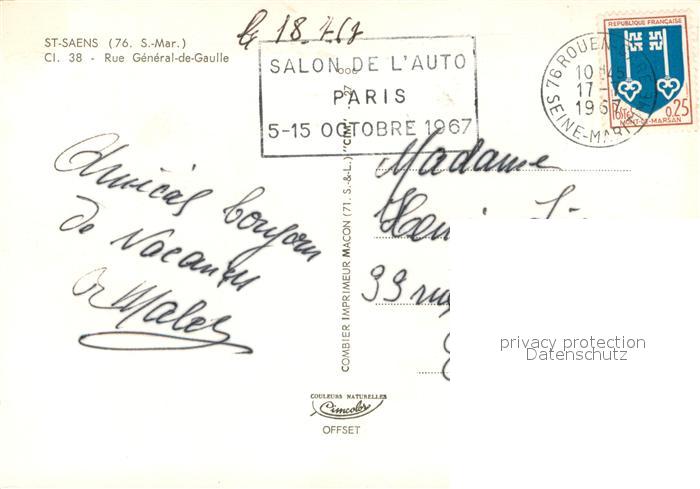 ST-SAENS (76. S.-Mar.)
Cl. 38 - Rue Général-de-Gaulle
le 18.7.67
SALON DE L'AUTO
PARIS
5-15 OCTOBRE 1967
76 ROUEN
17-7
1967
SEINE-MAR
REPUBLIQUE FRANÇAISE
POSTES 0,25
MONT-DE-MARSAN
Amical bonjour
de Vacances
COMBIER IMPRIMEUR MACON (71. S.-&-L.) "CIM"
Madame
99 rue
privacy protection
Datenschutz
COULEURS NATURELLES
Cimcolor
OFFSET